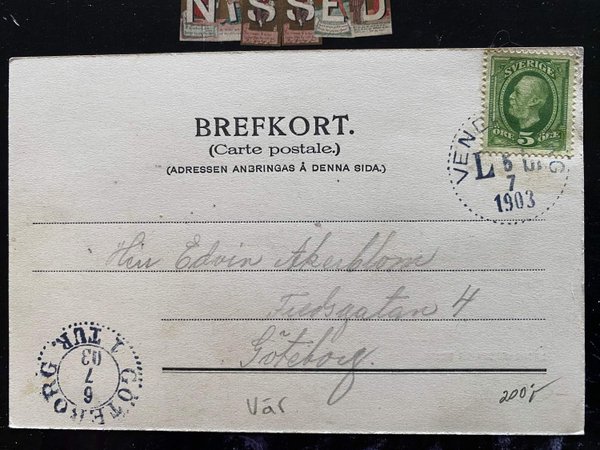 NISSED
BREFKORT.
(Carte postale.)
(ADRESSEN ANBRINGAS Å DENNA SIDA.)
SVERIGE
ÖRE 5 ÖRE
L
5
7
1903
Herr Edvin Akerblom
Fredsgatan 4
Göteborg.
GÖTEBORG 1 TUR
6
7
03
Vår
200:-